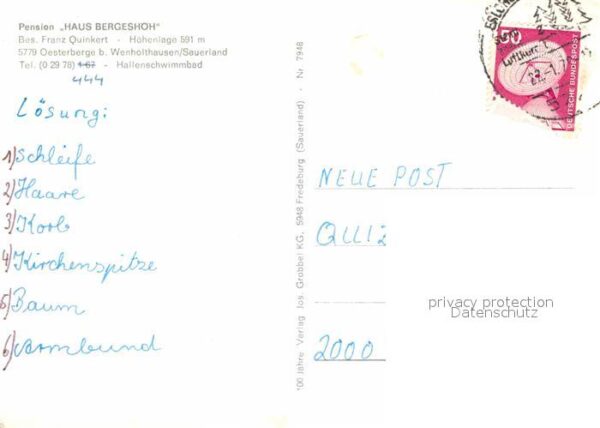 Pension „HAUS BERGESHÖH"
Bes. Franz Quinkert - Höhenlage 591 m
5779 Oesterberge b. Wenholthausen/Sauerland
Tel. (0 29 78) 1 67 - Hallenschwimmbad
444
Lösung:
1) Schleife
2) Haare
3) Korb
4) Kirchenspitze
5) Baum
6) Armbund
100 Jahre Verlag Jos. Grobbel KG, 5948 Fredeburg (Sauerland) - Nr 7948
50
DEUTSCHE BUNDESPOST
Luftkurort
NEUE POST
QUIZ
2000
privacy protection
Datenschutz